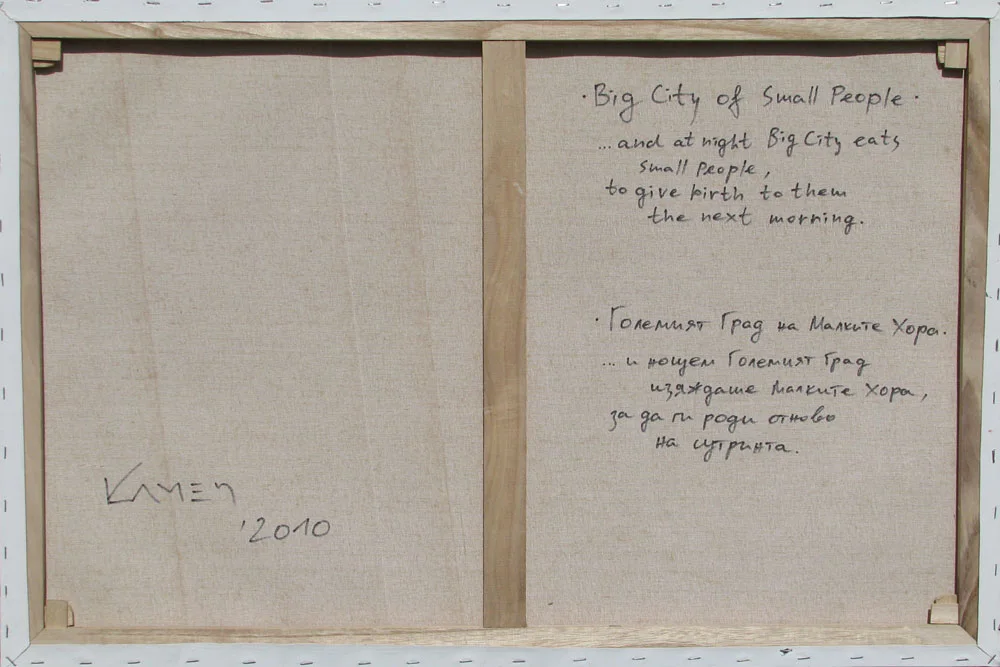 · Big City of Small People ·
... and at night Big City eats
small people,
to give birth to them
the next morning.
· Големият Град на Малките Хора.
... и нощем Големият Град
изяждаше Малките Хора,
за да ги роди отново
на сутринта.
KAMEN
'2010